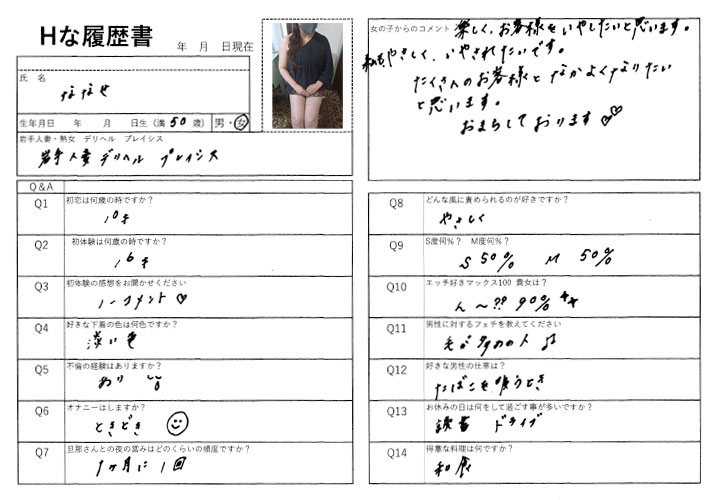 Hな履歴書
年 月 日現在
氏 名
ななせ
生年月日 年 月 日生(満 50 歳) 男・女
岩手人妻・熟女 デリヘル プレイシス
岩手人妻デリヘル プレイシス
Q&A
Q1 初恋は何歳の時ですか?
10才
Q2 初体験は何歳の時ですか?
16才
Q3 初体験の感想をお聞かせください
ノーコメント♡
Q4 好きな下着の色は何色ですか?
淡い色
Q5 不倫の経験はありますか?
あり
Q6 オナニーはしますか?
ときどき
Q7 旦那さんとの夜の営みはどのくらいの頻度ですか?
1ヶ月に1回
女の子からのコメント
楽しく、お客様をいやしたいと思います。
私もやさしく、いやされたいです。
たくさんのお客様となかよくなりたい
と思います。
おまちしております♡♡
Q8 どんな風に責められるのが好きですか?
やさしく
Q9 S度何%? M度何%?
S 50% M 50%
Q10 エッチ好きマックス100 貴女は?
ん〜?? 90%
Q11 男性に対するフェチを教えてください
毛が多めの人
Q12 好きな男性の仕草は?
たばこを吸うとき
Q13 お休みの日は何をして過ごす事が多いですか?
読書 ドライブ
Q14 得意な料理は何ですか?
和食